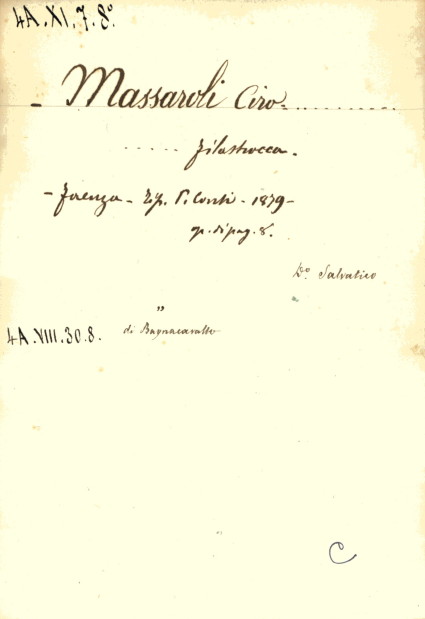 4A.XI.7.8°
- Massaroli Ciro- ............
..... filastrocca.
- Faenza - Tip. P. Conti - 1879-
op. di pag. 8.
Do. Salvatico
"
4A.VIII.30.8. di Bagnacavallo
C